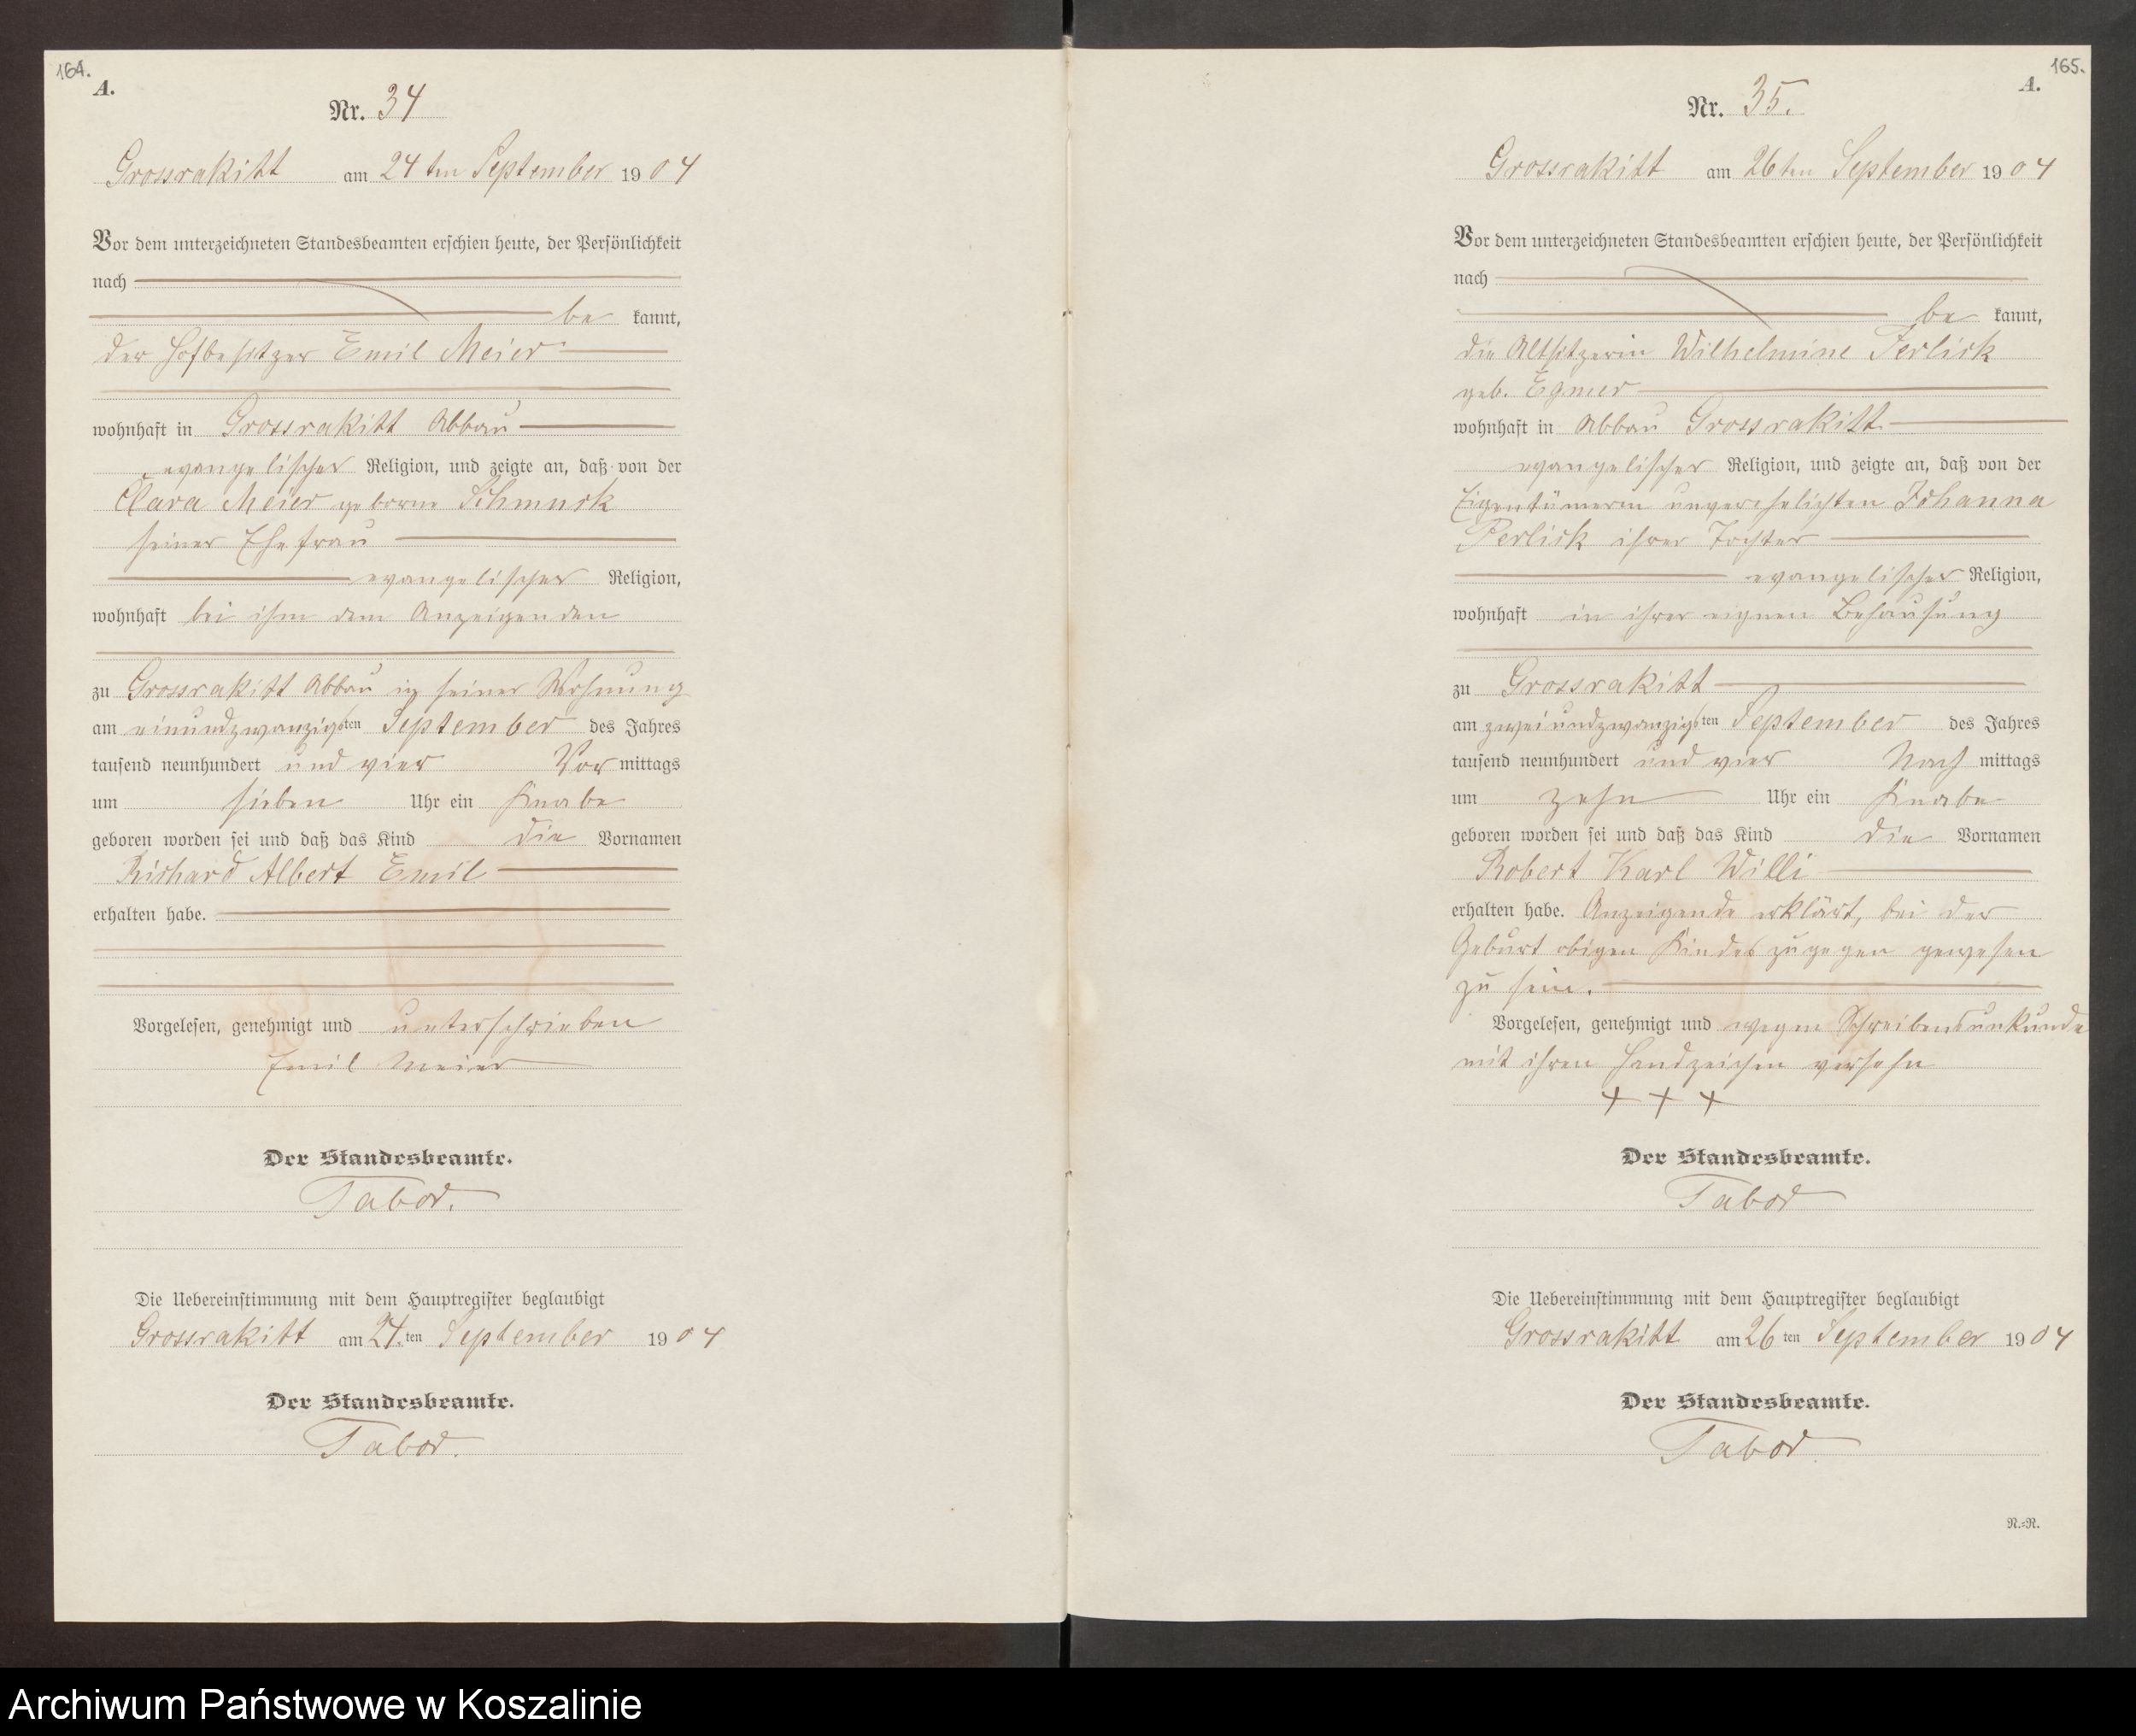 164.
A.
Nr. 34
Grossrakitt am 24ten September 1904
Vor dem unterzeichneten Standesbeamten erschien heute, der Persönlichkeit
nach
be kannt,
der Hofbesitzer Emil Meier
wohnhaft in Grossrakitt Abbau
evangelischer Religion, und zeigte an, daß von der
Clara Meier geborne Schmuck
seiner Ehefrau
evangelischer Religion,
wohnhaft bei ihm dem Anzeigenden
zu Grossrakitt Abbau in seiner Wohnung
am einundzwanzigsten September des Jahres
tausend neunhundert und vier Vor mittags
um sieben Uhr ein Knabe
geboren worden sei und daß das Kind die Vornamen
Richard Albert Emil
erhalten habe.
Vorgelesen, genehmigt und unterschrieben
Emil Meier
Der Standesbeamte.
Tabor.
Die Uebereinstimmung mit dem Hauptregister beglaubigt
Grossrakitt am 24.ten September 1904
Der Standesbeamte.
Tabor.
165.
A.
Nr. 35.
Grossrakitt am 26ten September 1904
Vor dem unterzeichneten Standesbeamten erschien heute, der Persönlichkeit
nach
be kannt,
die Altsitzerin Wilhelmine Perlick
geb. Egmer
wohnhaft in Abbau Grossrakitt
evangelischer Religion, und zeigte an, daß von der
Eigentümerin unverehelichten Johanna
Perlick ihrer Tochter
evangelischer Religion,
wohnhaft in ihrer eignen Behausung
zu Grossrakitt
am zweiundzwanzigsten September des Jahres
tausend neunhundert und vier Nach mittags
um zehn Uhr ein Knabe
geboren worden sei und daß das Kind die Vornamen
Robert Karl Willi
erhalten habe. Anzeigende erklärt, bei der
Geburt obigen Kindes zugegen gewesen
zu sein.
Vorgelesen, genehmigt und wegen Schreibensunkunde
mit ihren Handzeichen versehn
+ + +
Der Standesbeamte.
Tabor
Die Uebereinstimmung mit dem Hauptregister beglaubigt
Grossrakitt am 26ten September 1904
Der Standesbeamte.
Tabor
N.=R.
Archiwum Państwowe w Koszalinie